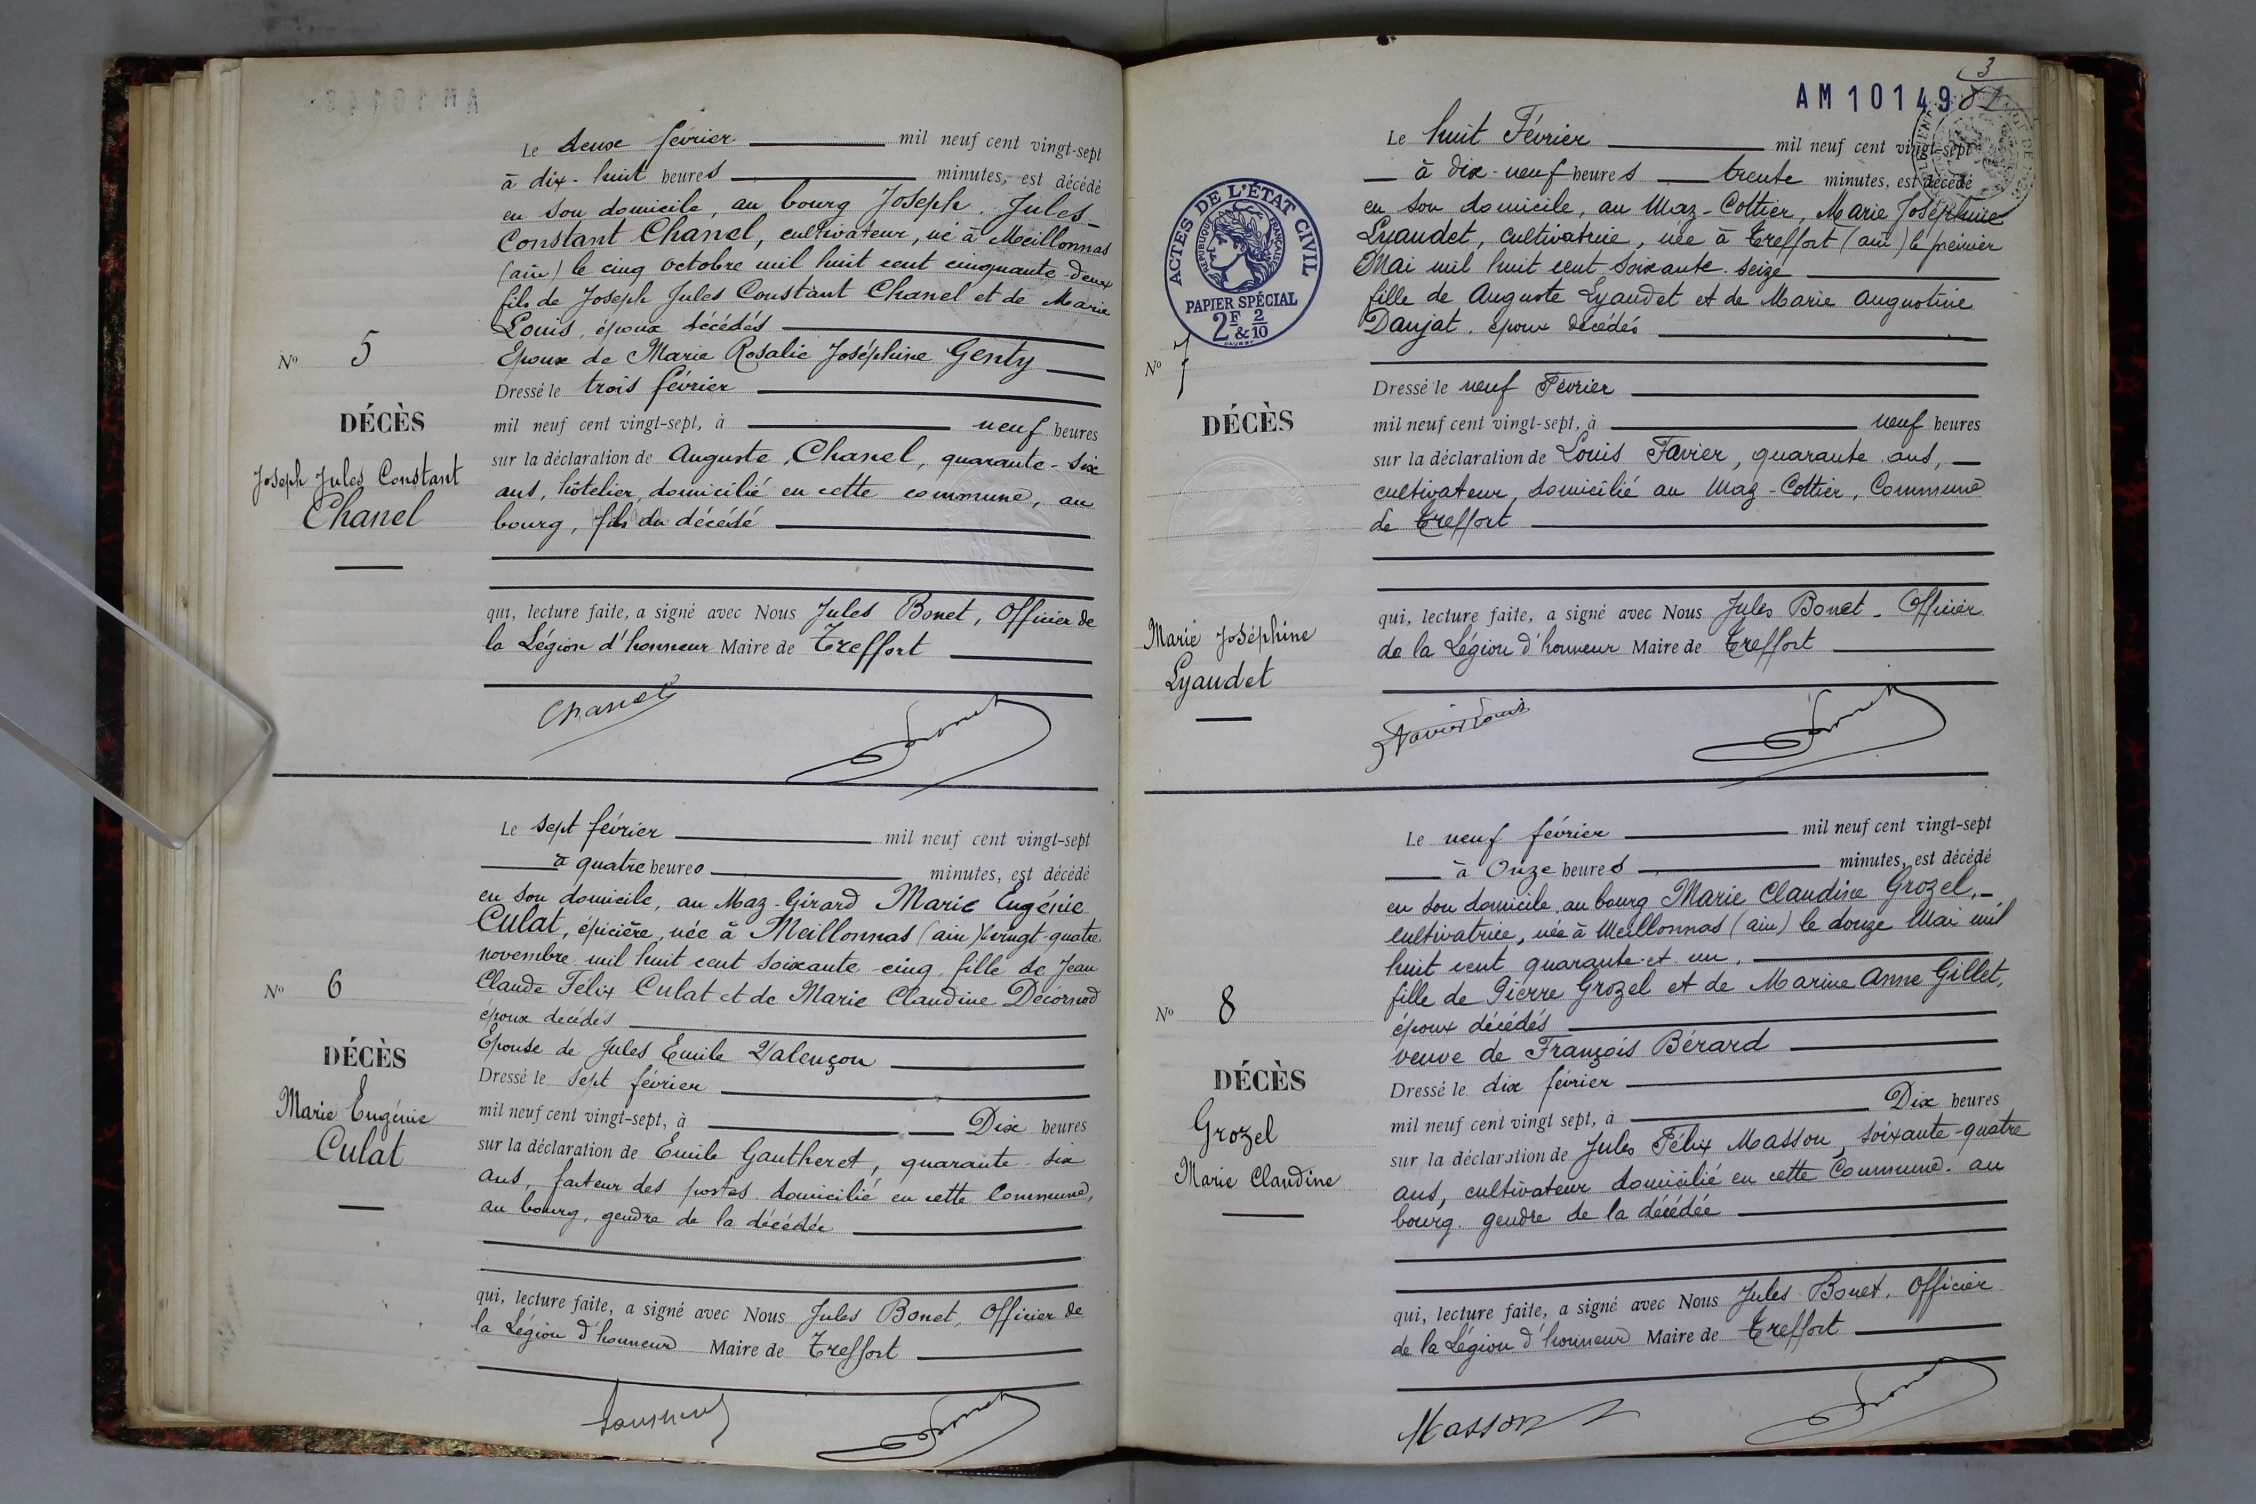 Le deux février mil neuf cent vingt-sept
à dix-huit heures minutes, est décédé
en son domicile, au bourg Joseph Jules
Constant Chanel, cultivateur, né à Meillonnas
(ain) le cinq octobre mil huit cent cinquante-deux
fils de Joseph Jules Constant Chanel et de Marie
Louis, époux décédés
Epoux de Marie Rosalie Joséphine Genty
Dressé le trois février
mil neuf cent vingt-sept, à neuf heures
sur la déclaration de Auguste Chanel, quarante-six
ans, hôtelier, domicilié en cette commune, au
bourg, fils du décédé
qui, lecture faite, a signé avec Nous Jules Bonet, Officier de
la Légion d'honneur Maire de Treffort
Chanel
Bonet
No 5
DÉCÈS
Joseph Jules Constant
Chanel
Le sept février mil neuf cent vingt-sept
à quatre heures minutes, est décédé
en son domicile, au Maz-Girard Marie Eugénie
Culat, épicière, née à Meillonnas (ain) le vingt-quatre
novembre mil huit cent soixante cinq, fille de Jean
Claude Félix Culat et de Marie Claudine Décornod
époux decédés
Epouse de Jules Emile Valençon
Dressé le sept février
mil neuf cent vingt-sept, à Dix heures
sur la déclaration de Emile Gautheret, quarante-six
ans, facteur des postes domicilié en cette Commune,
au bourg, gendre de la décédée
qui, lecture faite, a signé avec Nous Jules Bonet, Officier de
la Légion d'honneur Maire de Treffort
Bonet
No 6
DÉCÈS
Marie Eugénie
Culat
3
AM10149
Le huit Février mil neuf cent vingt-sept
à dix-neuf heures trente minutes, est décédé
en son domicile, au Maz-Cottier, Marie Joséphine
Lyaudet, cultivatrice, née à Treffort (ain) le premier
Mai mil huit cent soixante-seize
fille de Auguste Lyaudet et de Marie Augustine
Daujat, époux décédés
Dressé le neuf Février
mil neuf cent vingt-sept, à neuf heures
sur la déclaration de Louis Favier, quarante ans,
cultivateur, domicilié au Maz-Cottier, Commune
de Treffort
qui, lecture faite, a signé avec Nous Jules Bonet - Officier
de la Légion d'honneur Maire de Treffort
Favier Louis
Bonet
ACTES DE L'ÉTAT CIVIL
RÉPUBLIQUE FRANÇAISE
PAPIER SPÉCIAL
2F & 2/10
No 7
DÉCÈS
Marie Joséphine
Lyaudet
Le neuf février mil neuf cent vingt-sept
à Onze heures minutes, est décédé
en son domicile, au bourg Marie Claudine Grozel,
cultivatrice, née à Meillonnas (ain) le douze Mai mil
huit cent quarante et un,
fille de Pierre Grozel et de Marine Anne Gillet,
époux décédés
veuve de François Bérard
Dressé le dix février
mil neuf cent vingt sept, à Dix heures
sur la déclaration de Jules Félix Masson, soixante-quatre
ans, cultivateur domicilié en cette Commune au
bourg gendre de la décédée
qui, lecture faite, a signé avec Nous Jules Bonet, Officier
de la Légion d'honneur Maire de Treffort
Masson
Bonet
No 8
DÉCÈS
Grozel
Marie Claudine